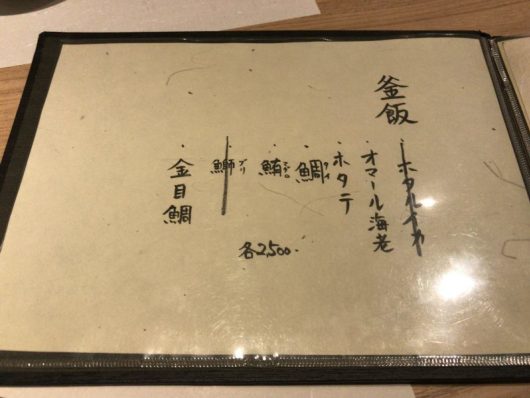 釜飯
・ホタルイカ
・オマール海老
・ホタテ
・鯛タイ
・鮪マグロ
・鰤ブリ
・金目鯛
各2,500-